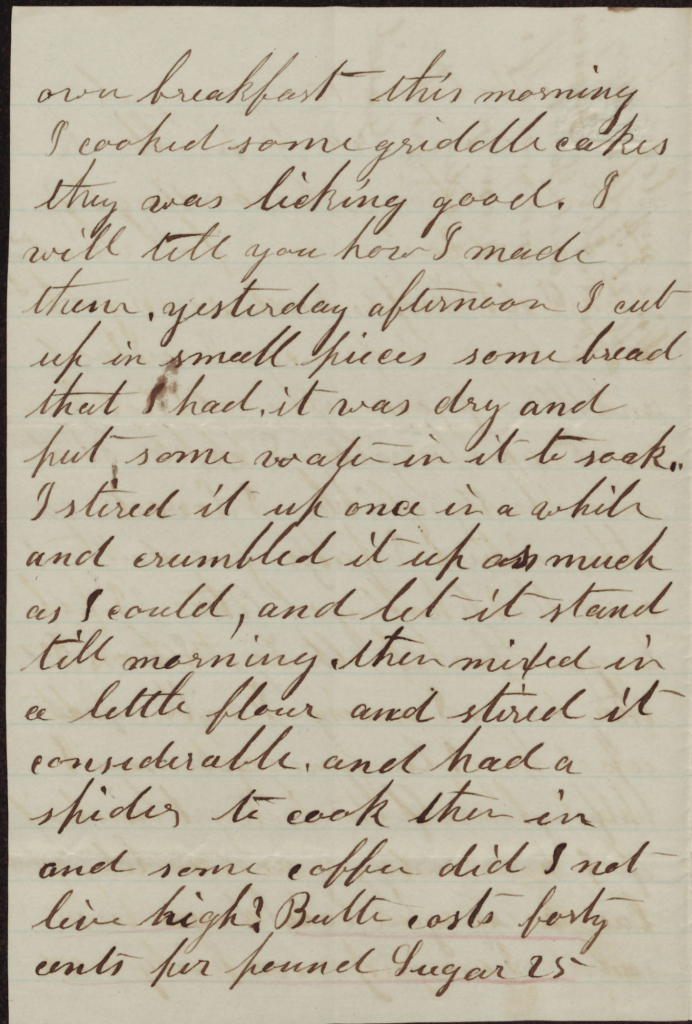 own breakfast this morning
I cooked some griddle cakes
they was licking good. I
will tell you how I made
them, yesterday afternoon I cut
up in small pieces some bread
that I had, it was dry and
put some water in it to soak..
I stired it up once in a while
and crumbled it up as much
as I could, and let it stand
till morning, then mixed in
a little flour and stired it
considerable, and had a
spider to cook then in
and some coffee did I not
live high? Butte costs forty
cents per pound Sugar 25